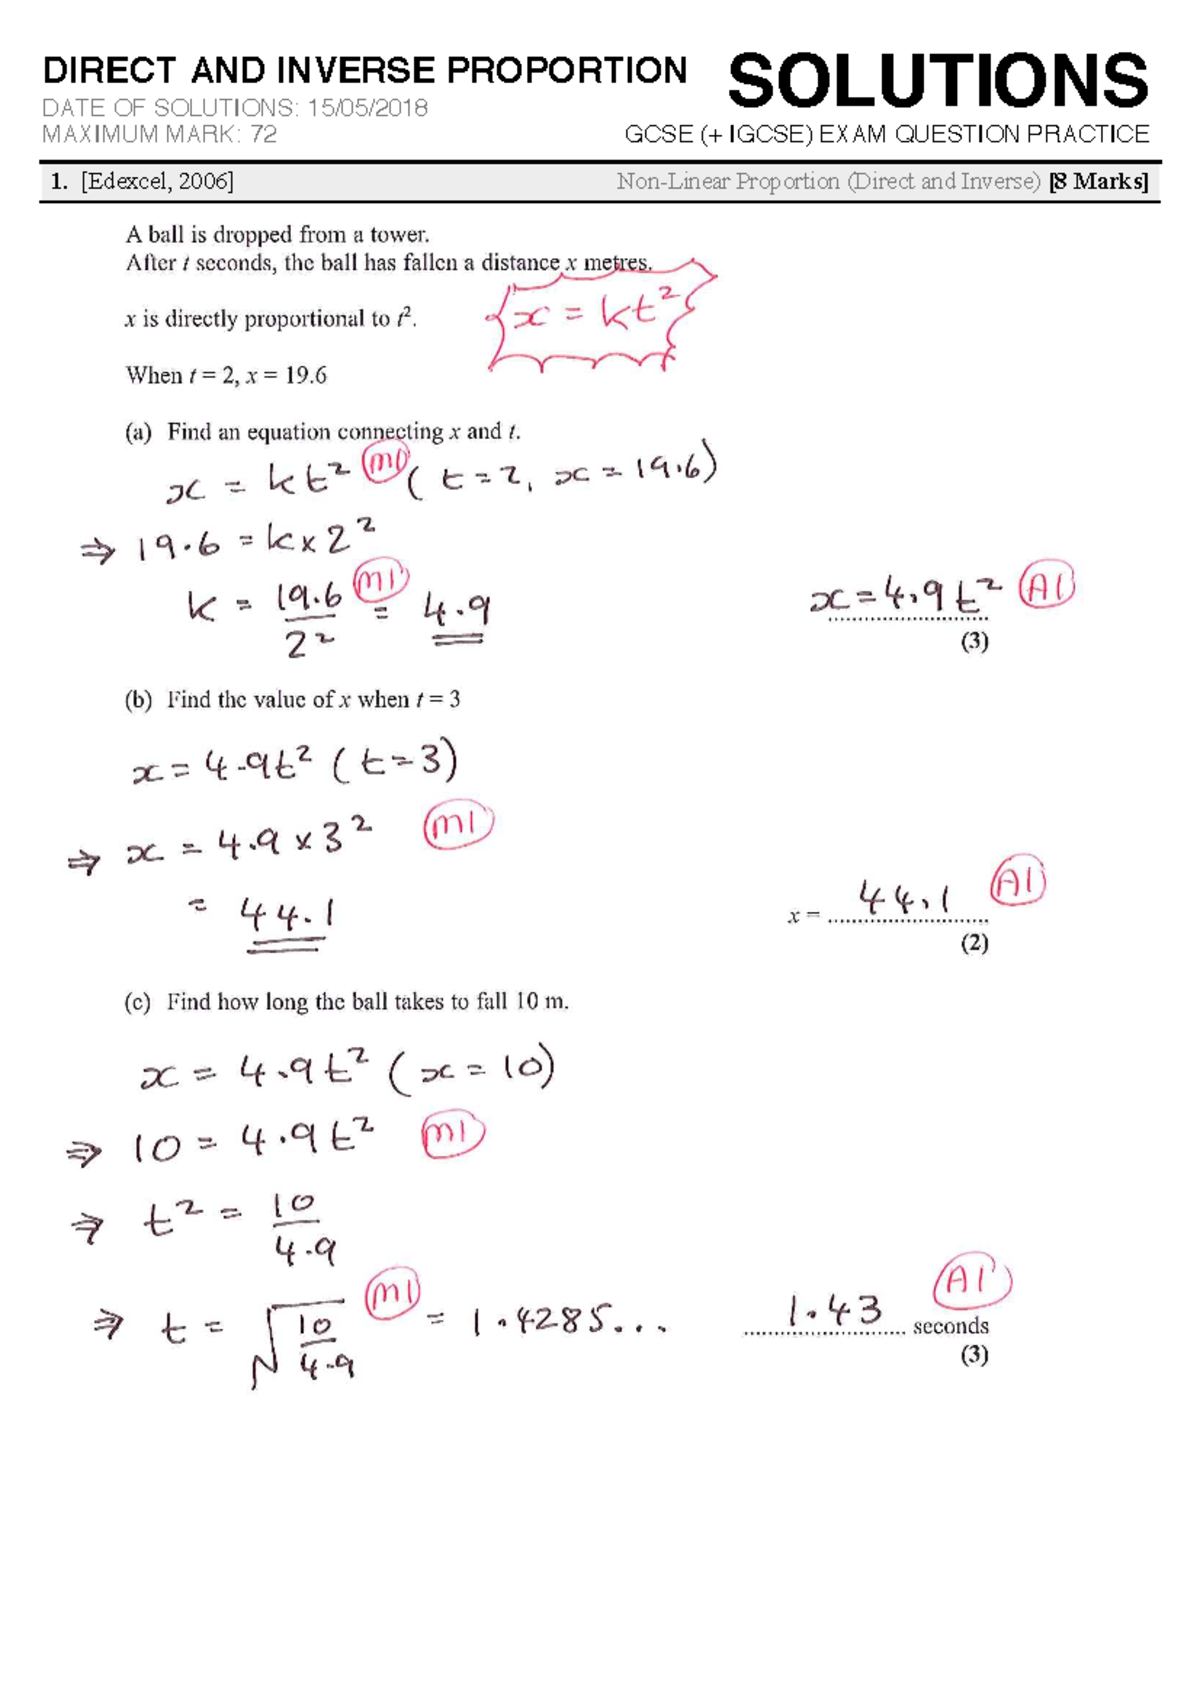 DIRECT AND INVERSE PROPORTION
SOLUTIONS
DATE OF SOLUTIONS: 15/05/2018
MAXIMUM MARK: 72
GCSE (+ IGCSE) EXAM QUESTION PRACTICE
1. [Edexcel, 2006] Non-Linear Proportion (Direct and Inverse) [8 Marks]
A ball is dropped from a tower.
After t seconds, the ball has fallen a distance x metres.
x is directly proportional to t².
x = kt²
When t = 2, x = 19.6
(a) Find an equation connecting x and t.
x = kt² M1 (t=2, x=19.6)
⇒ 19.6 = k×2²
k = 19.6/2² M1 = 4.9
x=4.9t² A1
(3)
(b) Find the value of x when t = 3
x=4.9t² (t=3)
⇒ x = 4.9×3² M1
= 44.1
x = 44.1 A1
(2)
(c) Find how long the ball takes to fall 10 m.
x = 4.9t² (x=10)
⇒ 10 = 4.9t² M1
⇒ t² = 10/4.9
⇒ t = √10/4.9 M1 = 1.4285...
1.43 seconds A1
(3)